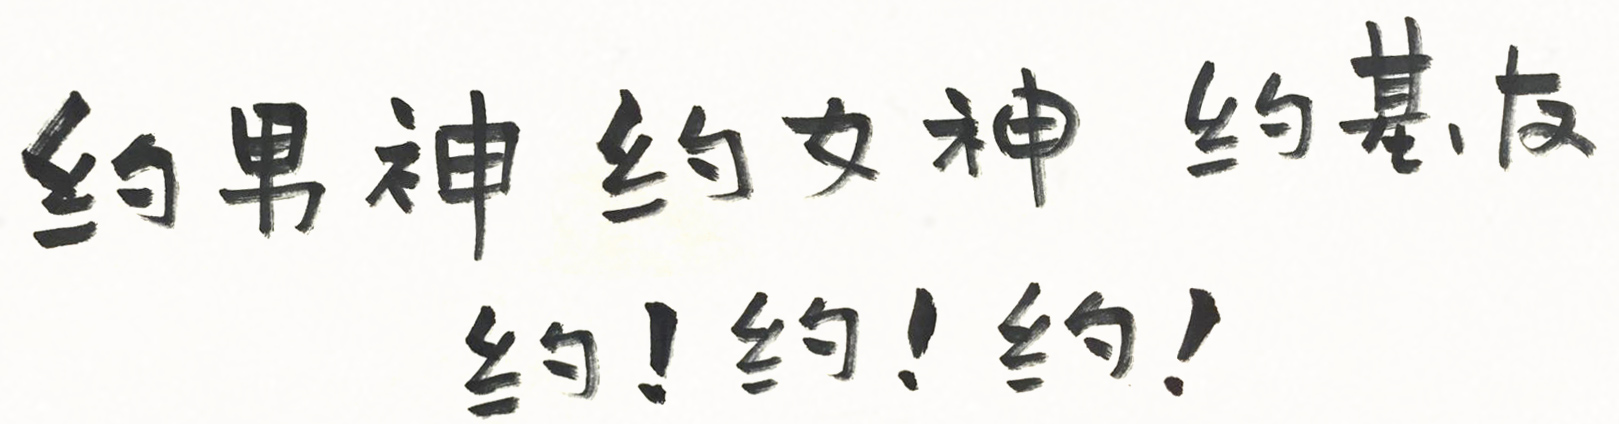 约男神 约女神 约基友
约！约！约！